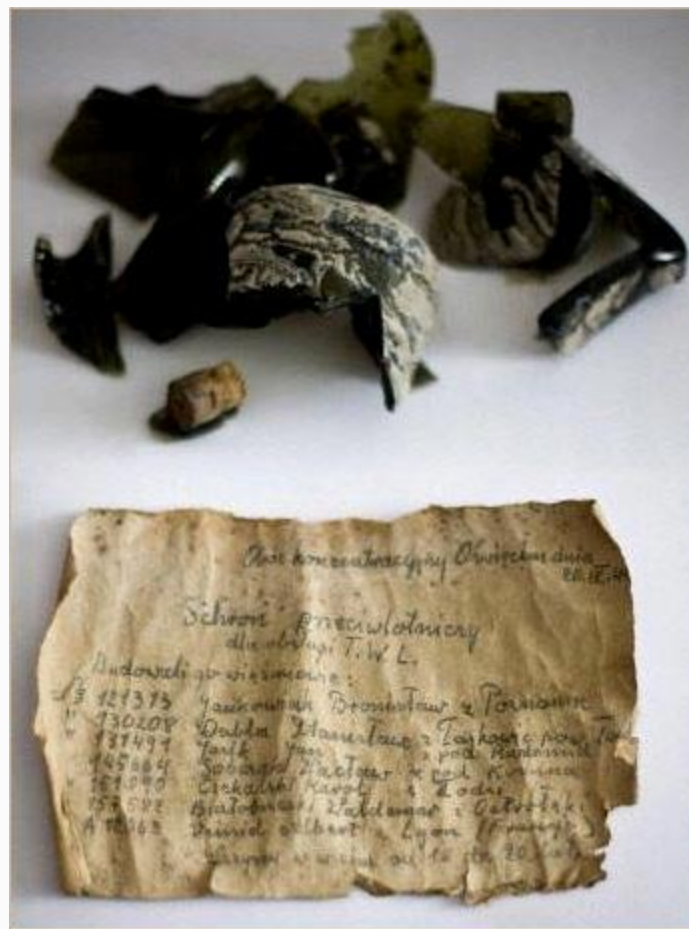 Obóz koncentracyjny Oświęcim dnia
20.IX.44
Schron przeciwlotniczy
dla obsługi T.W.L.
Budowali go więźniowie:
121313 Jankowiak Bronisław z Poznania
130208 Dubla Stanisław z Łaskowic pow.
131491 Jasik Jan z pod Radomia
145664 Sobczak Wacław z pod Konina
151090 Czekalski Karol z Łodzi
157582 Białobrzeski Waldemar z Ostrołęki
A 12063 Albert z Lyon
Wszyscy w wieku od 18 do 20 lat